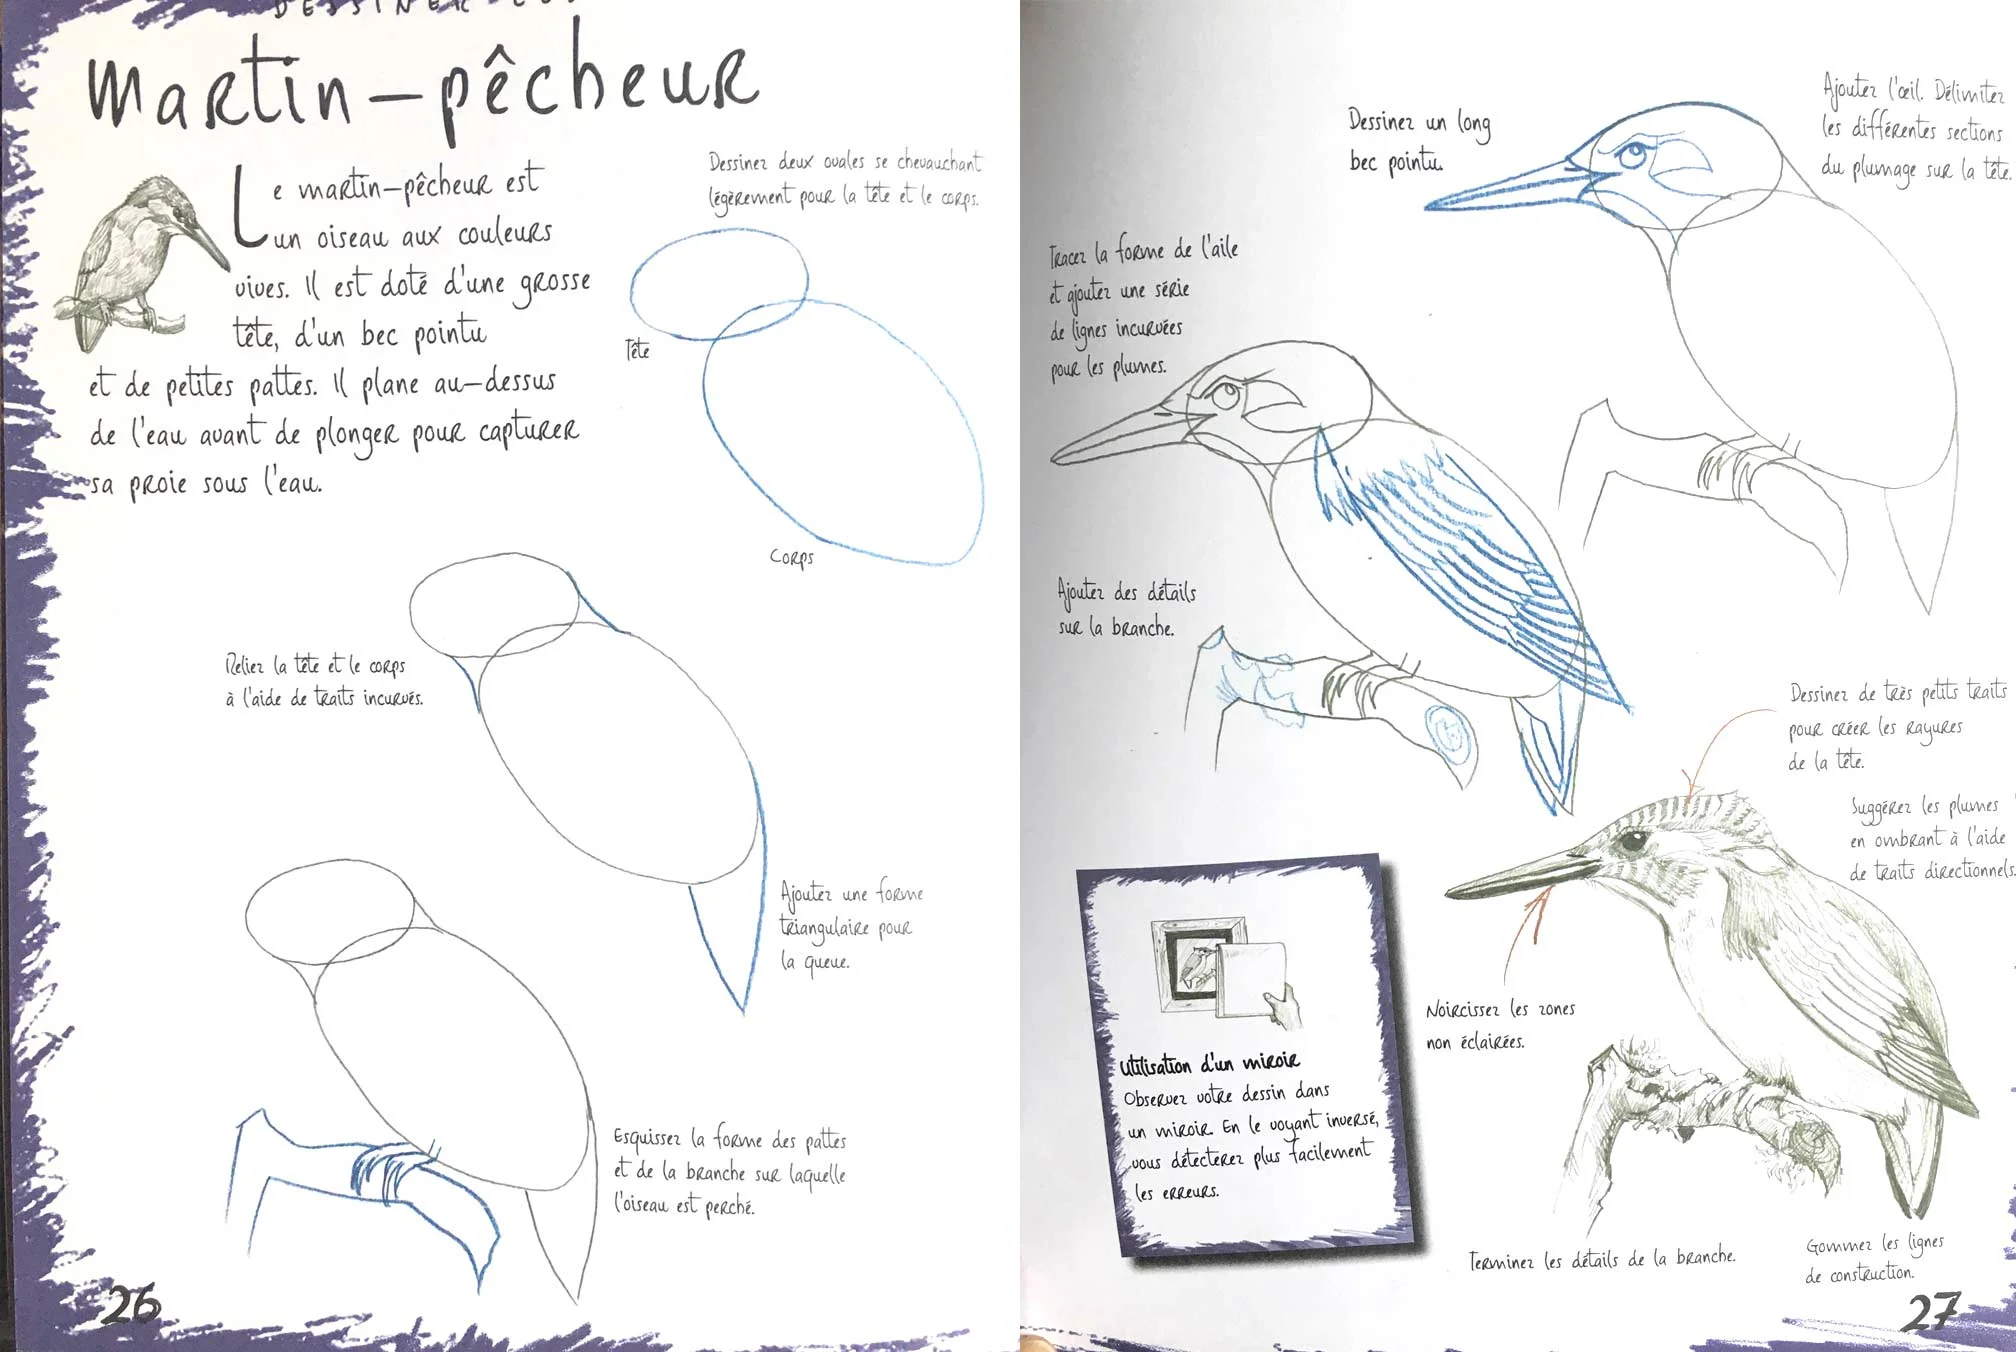 DESSINER
Martin-pêcheur
Le martin-pêcheur est
un oiseau aux couleurs
vives. Il est doté d'une grosse
tête, d'un bec pointu
et de petites pattes. Il plane au-dessus
de l'eau avant de plonger pour capturer
sa proie sous l'eau.
Dessinez deux ovales se chevauchant
légèrement pour la tête et le corps.
Tête
Corps
Reliez la tête et le corps
à l'aide de traits incurvés.
Ajoutez une forme
triangulaire pour
la queue.
Esquissez la forme des pattes
et de la branche sur laquelle
l'oiseau est perché.
26
Dessinez un long
bec pointu.
Ajoutez l'œil. Délimitez
les différentes sections
du plumage sur la tête.
Tracez la forme de l'aile
et ajoutez une série
de lignes incurvées
pour les plumes.
Ajoutez des détails
sur la branche.
Dessinez de très petits traits
pour créer les rayures
de la tête.
Suggérez les plumes
en ombrant à l'aide
de traits directionnels.
Noircissez les zones
non éclairées.
Utilisation d'un miroir
Observez votre dessin dans
un miroir. En le voyant inversé,
vous détecterez plus facilement
les erreurs.
Terminez les détails de la branche.
Gommez les lignes
de construction.
27